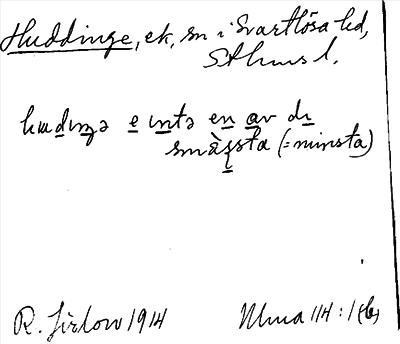 Huddinge, ek, sn i Svartlösa hd,
Sthms l.
hudiŋə e intə en av di
smàʂta (= minsta)
R. Jirlow 1914 Ulma 114:1(6)